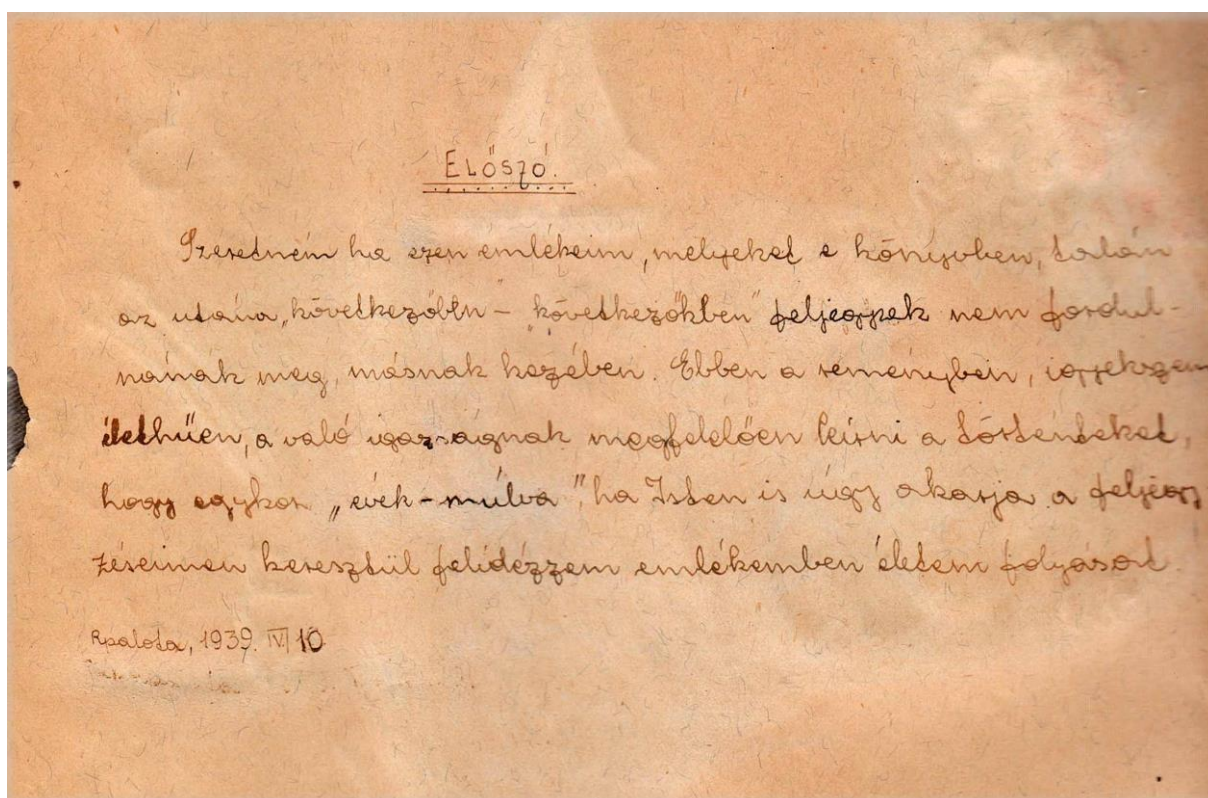 Előszó.
Szeretném ha ezen emlékeim, melyeket e könyvben, talán
az utána „következőben – következőkben" feljegyzek nem fordul-
nának meg, másnak kezében. Ebben a reményben, igyekszem
élethűen, a való igazságnak megfelelően leírni a történteket,
hogy egykor „évek-múlva", ha Isten is úgy akarja a feljegy
zéseimen keresztül felidézzem emlékemben életem folyását.
Rpalota, 1939. IV 10